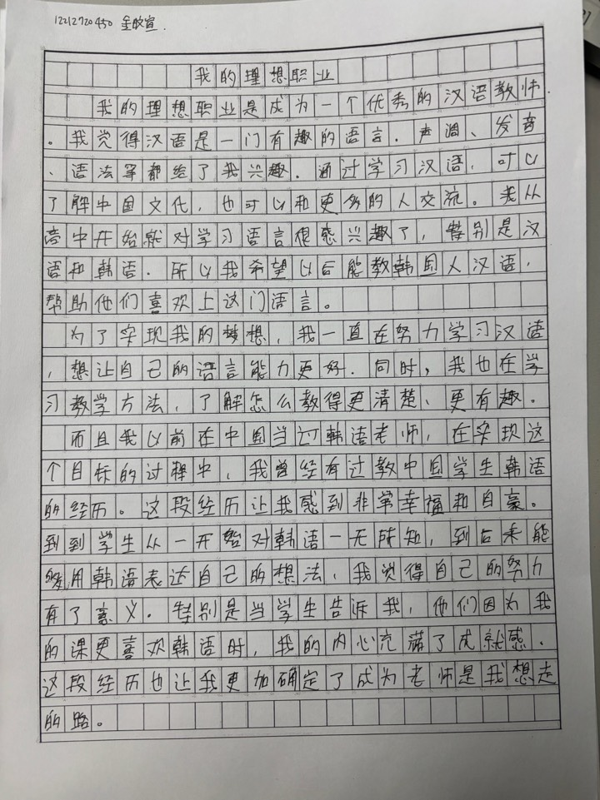 12212720450 金旼宣.
我的理想职业
我的理想职业是成为一个优秀的汉语教师
。我觉得汉语是一门有趣的语言. 声调、发音
、语法等都给了我兴趣. 通过学习汉语, 可以
了解中国文化, 也可以和更多的人交流。我从
高中开始就对学习语言很感兴趣了, 特别是汉
语和韩语. 所以我希望以后能教韩国人汉语,
帮助他们喜欢上这门语言。
为了实现我的梦想, 我一直在努力学习汉语
, 想让自己的语言能力更好. 同时, 我也在学
习教学方法, 了解怎么教得更清楚、更有趣.
而且我以前在中国当过韩语老师, 在实现这
个目标的过程中, 我曾经有过教中国学生韩语
的经历。这段经历让我感到非常幸福和自豪。
到到学生从一开始对韩语一无所知, 到后来能
够用韩语表达自己的想法, 我觉得自己的努力
有了意义. 特别是当学生告诉我, 他们因为我
的课更喜欢韩语时, 我的内心充满了成就感.
这段经历也让我更加确定了成为老师是我想走
的路。